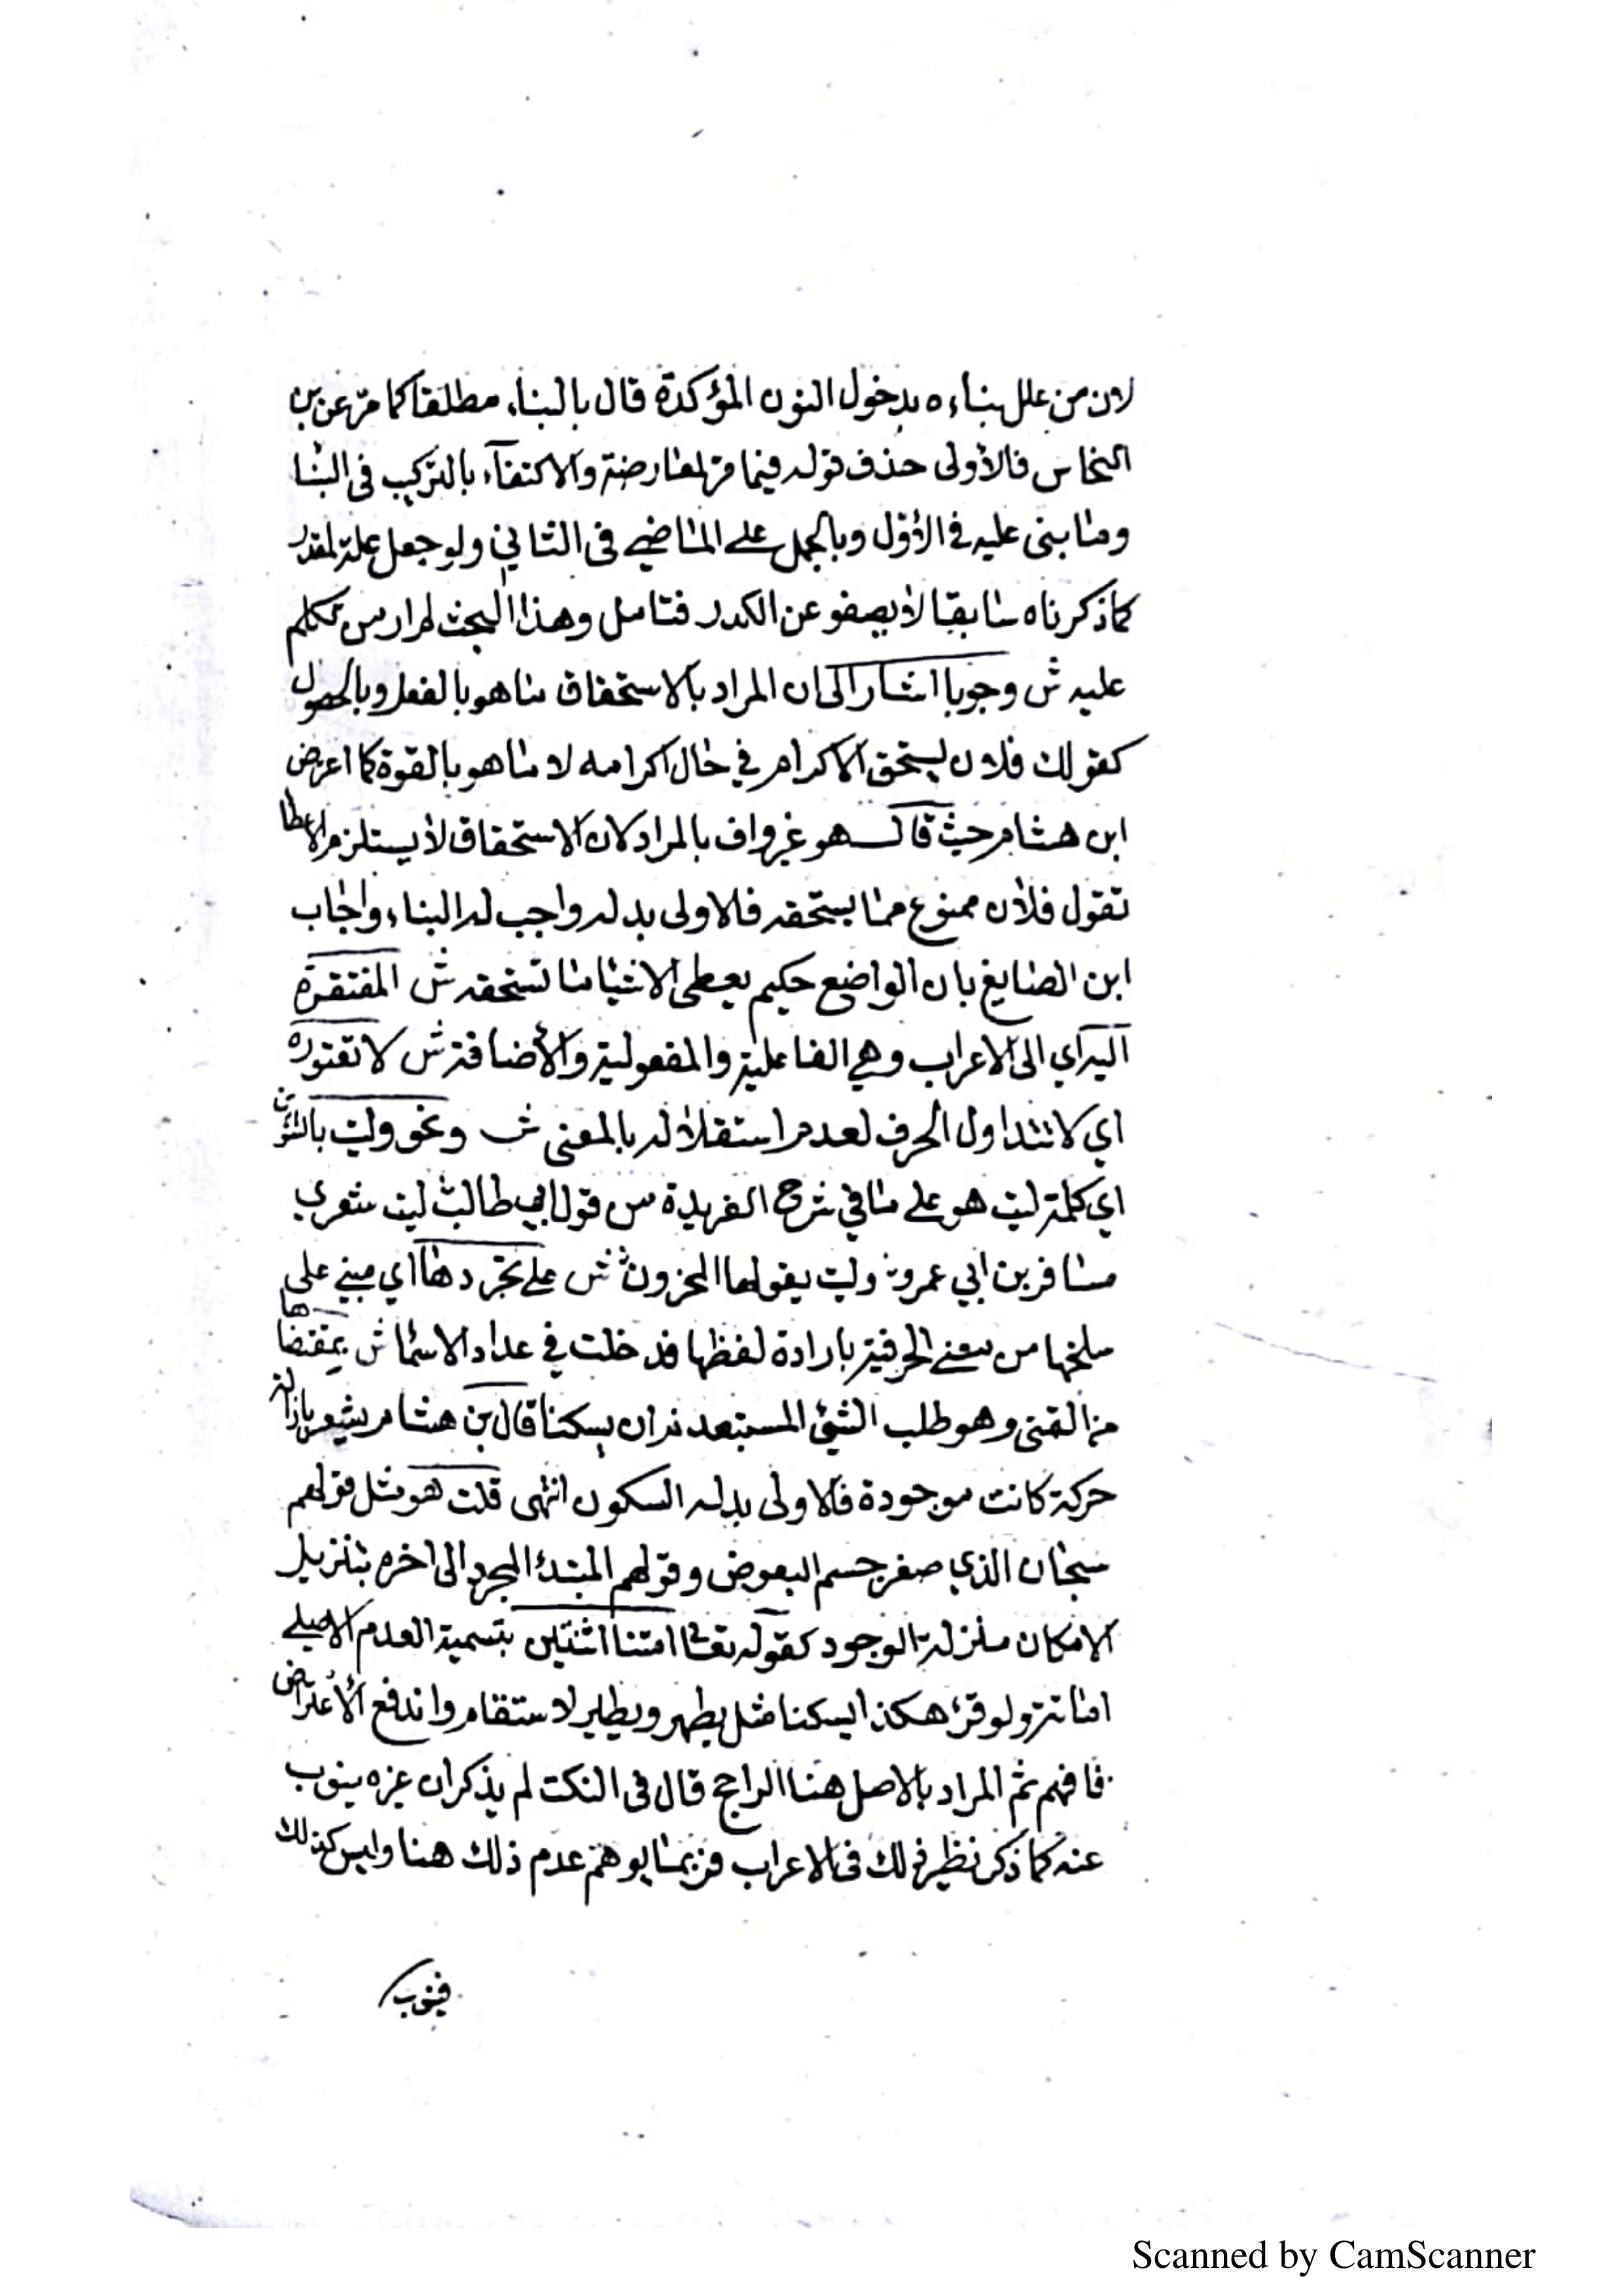 لان من علل بناءه بدخول النون المؤكدة قال بالبناء مطلقا كما مر عن بن
النحاس فالأولى حذف قوله فيما مر لمعارضة والاكتفآء بالتركيب فى البنا
وما بنى عليه في الأول وبالحمل على الماضي فى الثاني ولو جعل علة لمقدر
كما ذكرناه سابقا لا يصفو عن الكدر فتامل وهذا البحث لم ار من تكلم
عليه ش وجوبا اشار الى ان المراد بالاستحقاق ما هو بالفعل وبالحصول
كقولك فلان يستحق الاكرام في حال اكرامه لا ما هو بالقوة كما اعرض
ابن هشام حيث قال هو غير واف بالمراد لان الاستحقاق لا يستلزم الاعطا
تقول فلان ممنوع مما يستحقه فالاولى بدله واجب له البناء واجاب
ابن الصايغ بان الواضع حكيم يعطى الاشيا ما تستحقه ش المفتقرة
اليه اي الى الاعراب وهي الفاعلية والمفعولية والأضافة ش لا تعتوره
اي لا تتداول الحرف لعدم استقلاله بالمعنى ش ونحو وليت بالتنوين
اي كلمة ليت هو على ما في شرح الفريدة من قول ابي طالب ليت شعري
مسافر بن ابي عمرو وليت يقولها المحزون ش على تجردها اي مبني على
سلخها من معنى الحرفية بارادة لفظها فدخلت في عداد الاسما ش بمقتضاها
من التمنى وهو طلب الشئ المستبعد ان يسكنا قال بن هشام يشعر بازالة
حركة كانت موجودة فالاولى بدله السكون انتهى قلت هو مثل قولهم
سبحان الذي صغر جسم البعوض وقولهم المبتدأ المجرد الى اخره بتنزيل
الامكان منزلة الوجود كقوله تعالى امتنا اثنتين بتسمية العدم الاصلي
اماتة ولو قرئ هكذا يسكنا مثل يطهر ويطير لاستقام واندفع الأعتراض
فافهم ثم المراد بالاصل هنا الراجح قال فى النكت لم يذكر ان غيره ينوب
عنه كما ذكر نظير ذلك فى الاعراب فربما يوهم عدم ذلك هنا وليس كذلك
فينوب
Scanned by CamScanner